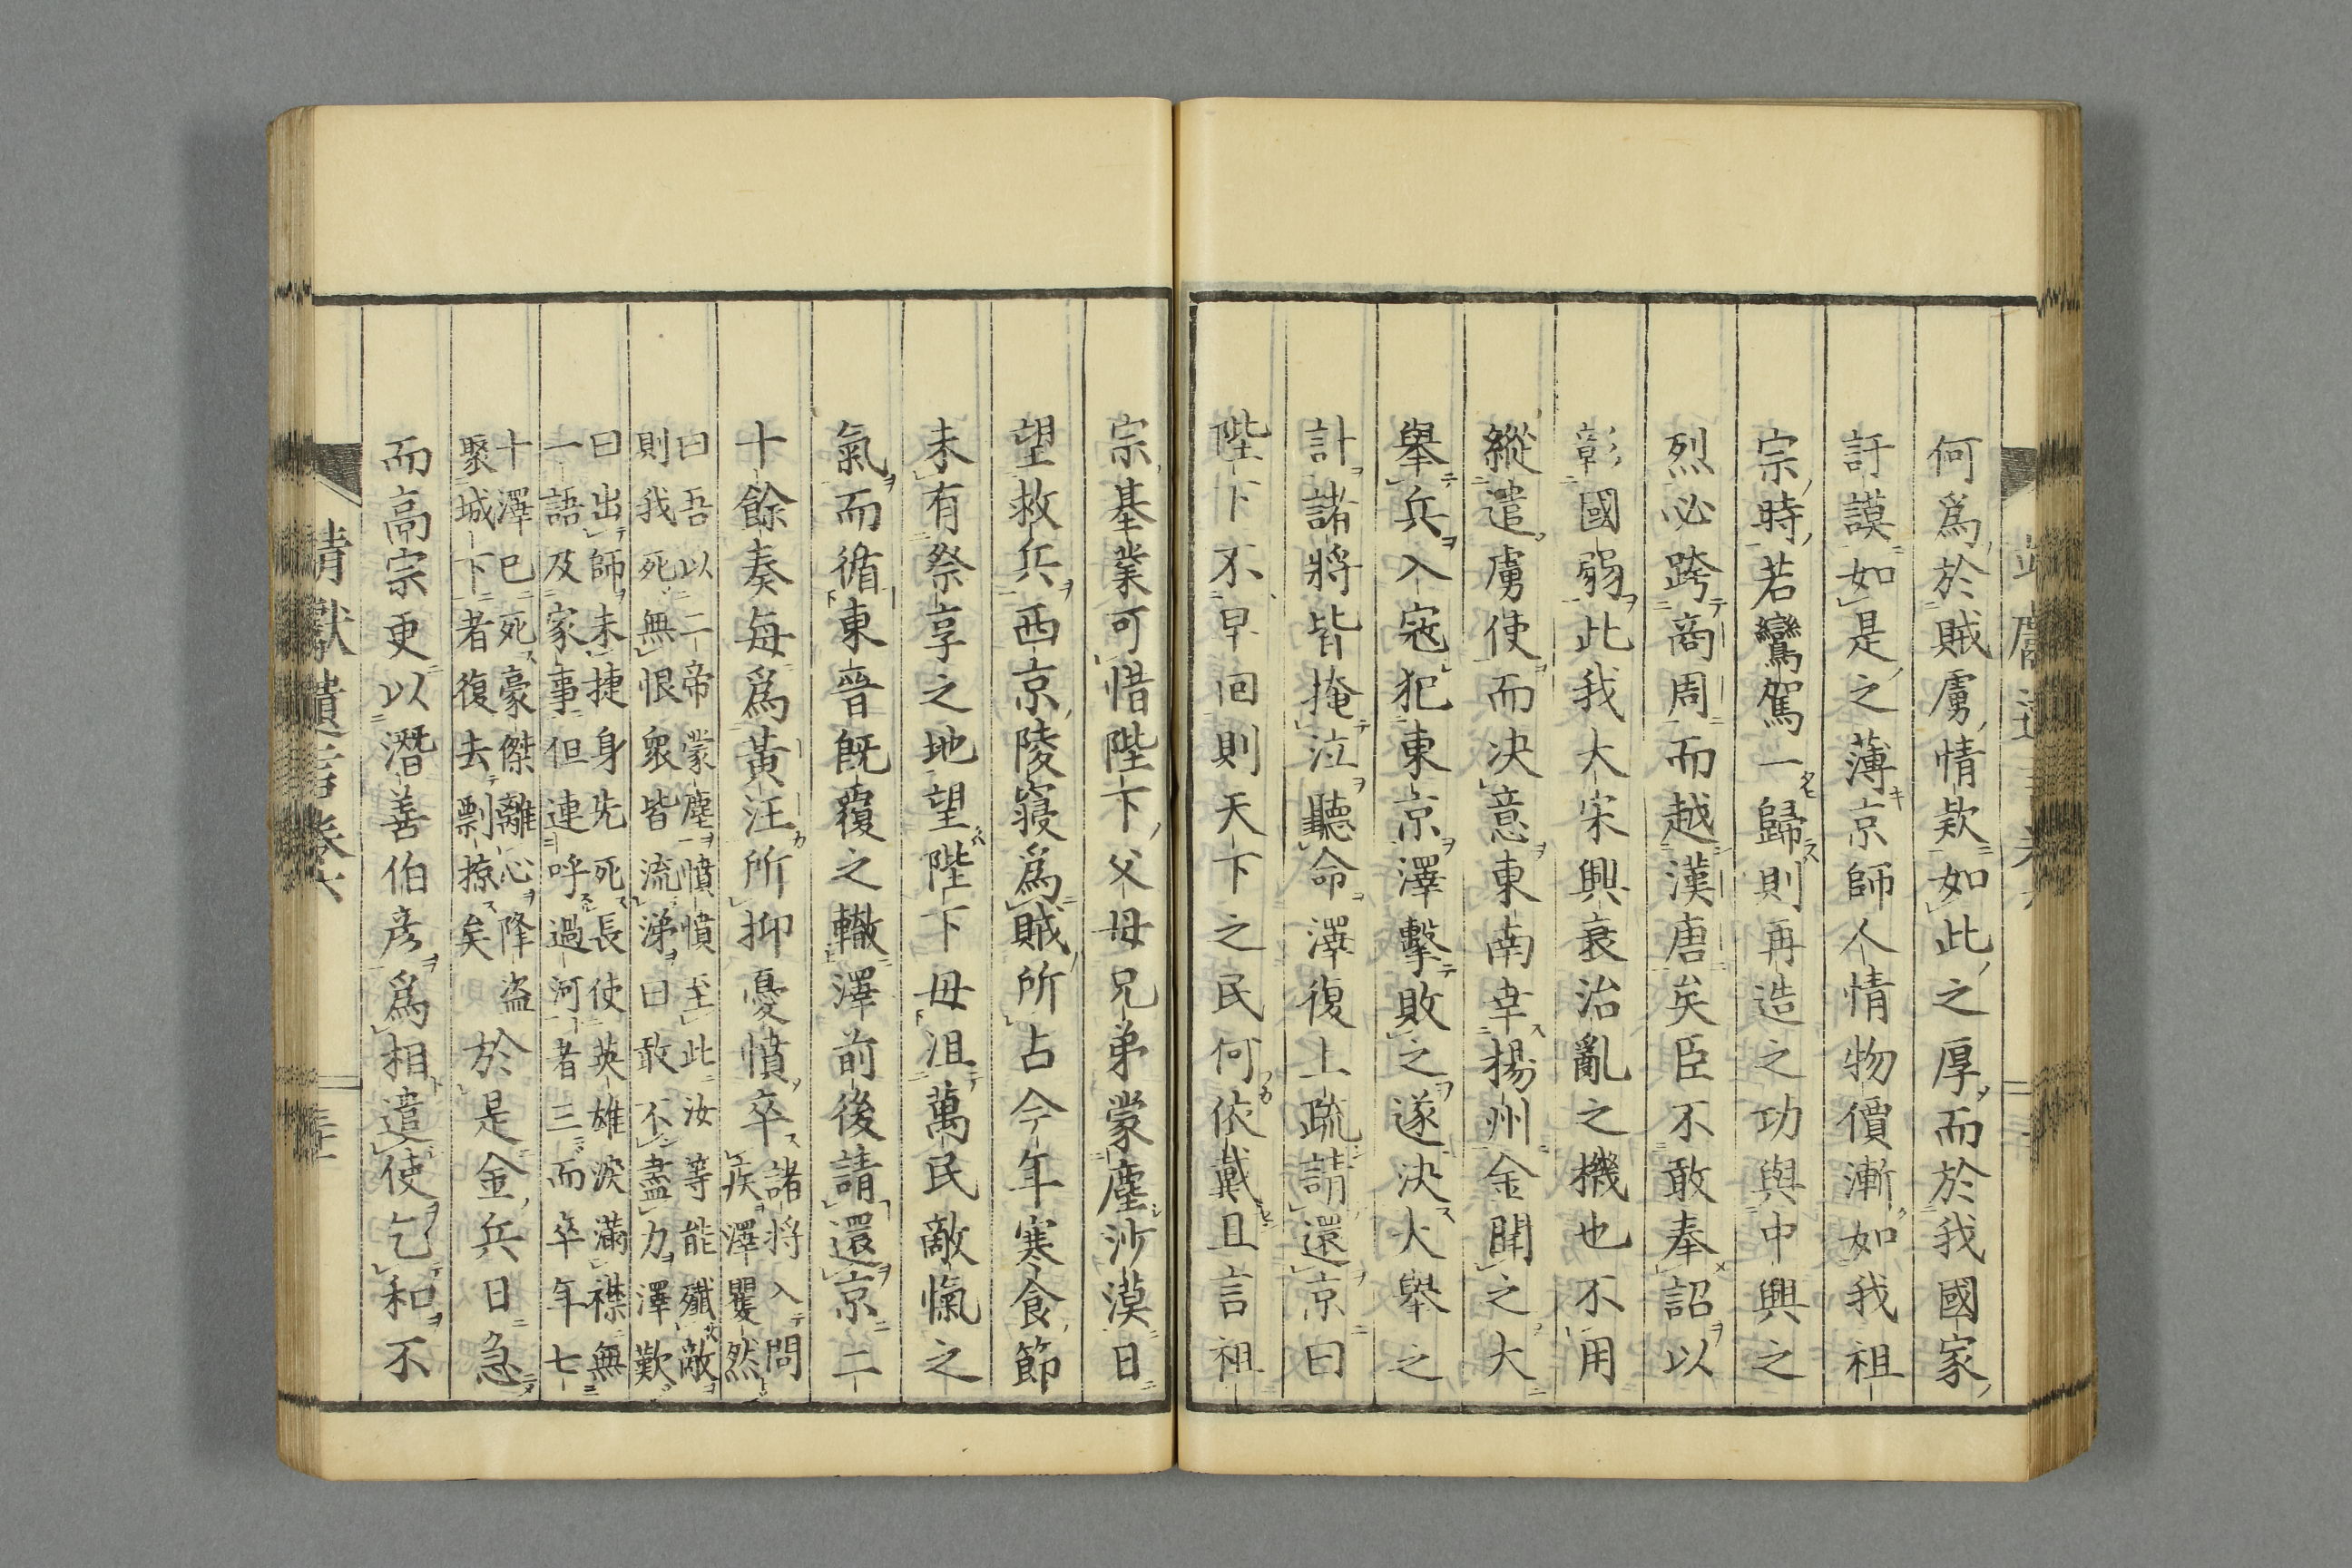 何爲於賊虜情款如此之厚而於我國家
訏謨如是之薄京師人情物價漸如我祖
宗時若鸞駕一歸則再造之功與中興之
烈必跨商周而越漢唐矣臣不敢奉詔以
彰國弱此我大宋興衰治亂之機也不用
縱遣虜使而决意東南幸揚州金聞之大
擧兵入寇犯東京澤擊敗之遂决大舉之
計諸將皆掩泣聽命澤復上疏請還京曰
陛下不早回則天下之民何依戴且言祖
宗基業可惜陛下父母兄弟蒙塵沙漠日
望救兵西京陵寝爲賊所占今年寒食節
未有祭享之地望陛下毋沮萬民敵愾之
氣而循東晉既覆之轍澤前後請還京二
十餘奏每爲黃汪所抑憂憤卒
諸將入問
疾澤矍然
曰吾以二帝蒙塵憤憤至此汝等能殲敵
則我死無恨衆皆流涕曰敢不盡力澤歎
曰出師未捷身先死長使英雄淚滿襟無
一語及家事但連呼過河者三而卒年七
十澤已死豪傑離心降盗
聚城下者復去剽掠矣
於是金兵日急
而高宗更以潛善伯彥爲相遣使乞和不
靖獻遺言卷六